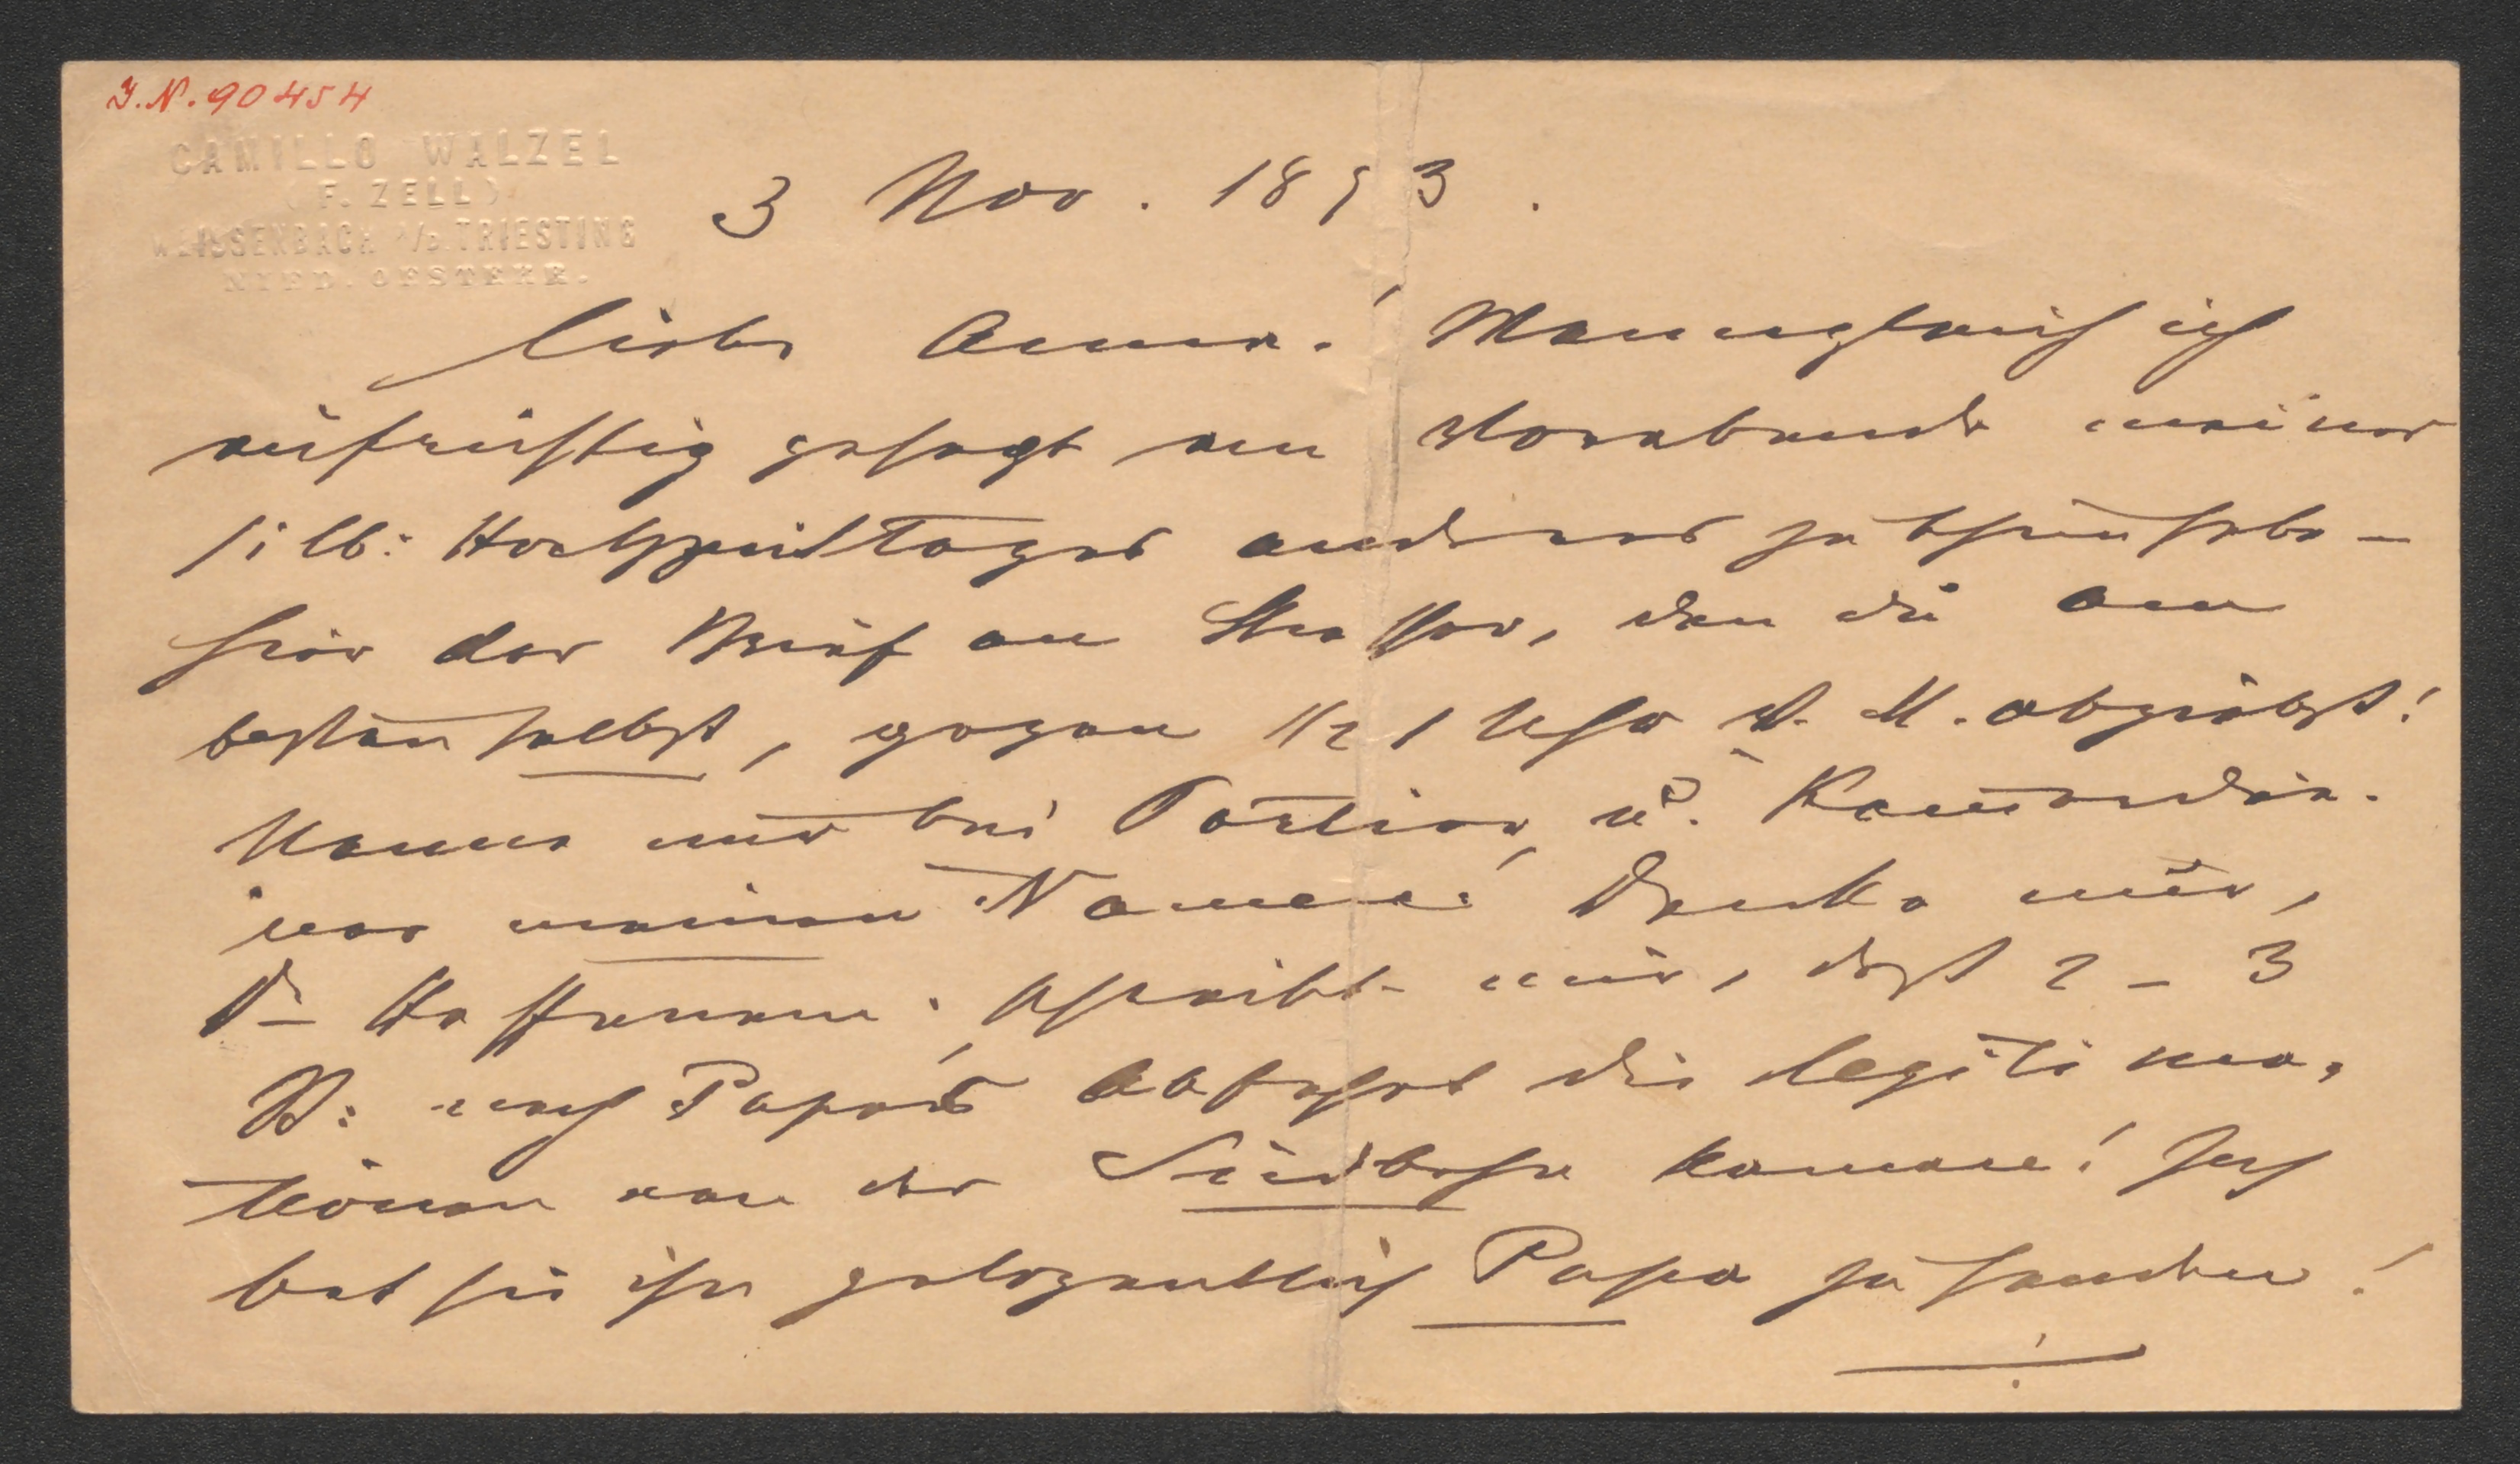 I.N. 90454
CAMILLO WALZEL
(F. ZELL)
WEISSENBACH A/D. TRIESTING
NIED. OESTERR.
3 Nov. 1893.
Liebe Anna! Wenngleich ich
aufrichtig gesagt am Vorabende meiner
silb: Hochzeitstages anderes zu thun habe –
hier der Brief an Strasser, den du am
besten selbst, gegen 1/2 1 Uhr V. M. abgiebst!
Nenne nur bei Portier u. Kammerdie-
ner meinen Namen! Denke nur,
Dr Hoffmann schreibt mir, daß 2–3
W: nach Papa's Abfahrt die Legitima-
tionen von der Südbahn kamen! Ich
bat sie ihn gelegentlich Papa zu senden!